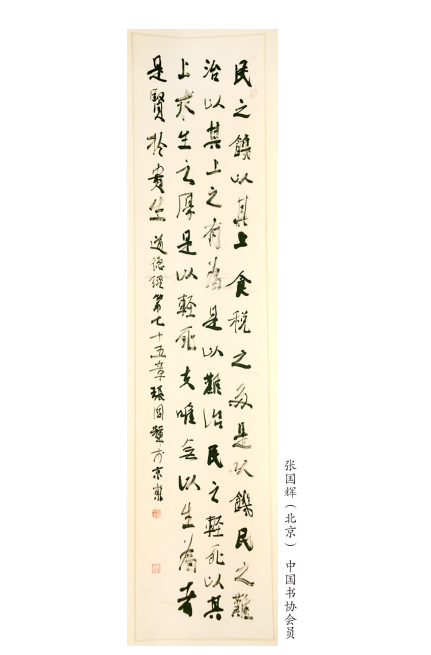 民之饑以其上食税之多是以饑民之難
治以其上之有為是以難治民之輕死以其
上求生之厚是以輕死夫唯無以生為者
是賢於貴生 道德經第七十五章張國輝於京
张国辉（北京） 中国书协会员